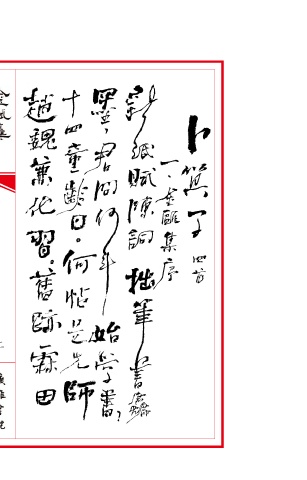 卜算子 四首
一、金雕集序
紙賦陳詞 拙筆書
墨，君問何年始学書？
十四童齡日。何帖是先師
趙魏兼化習。舊跡霖田